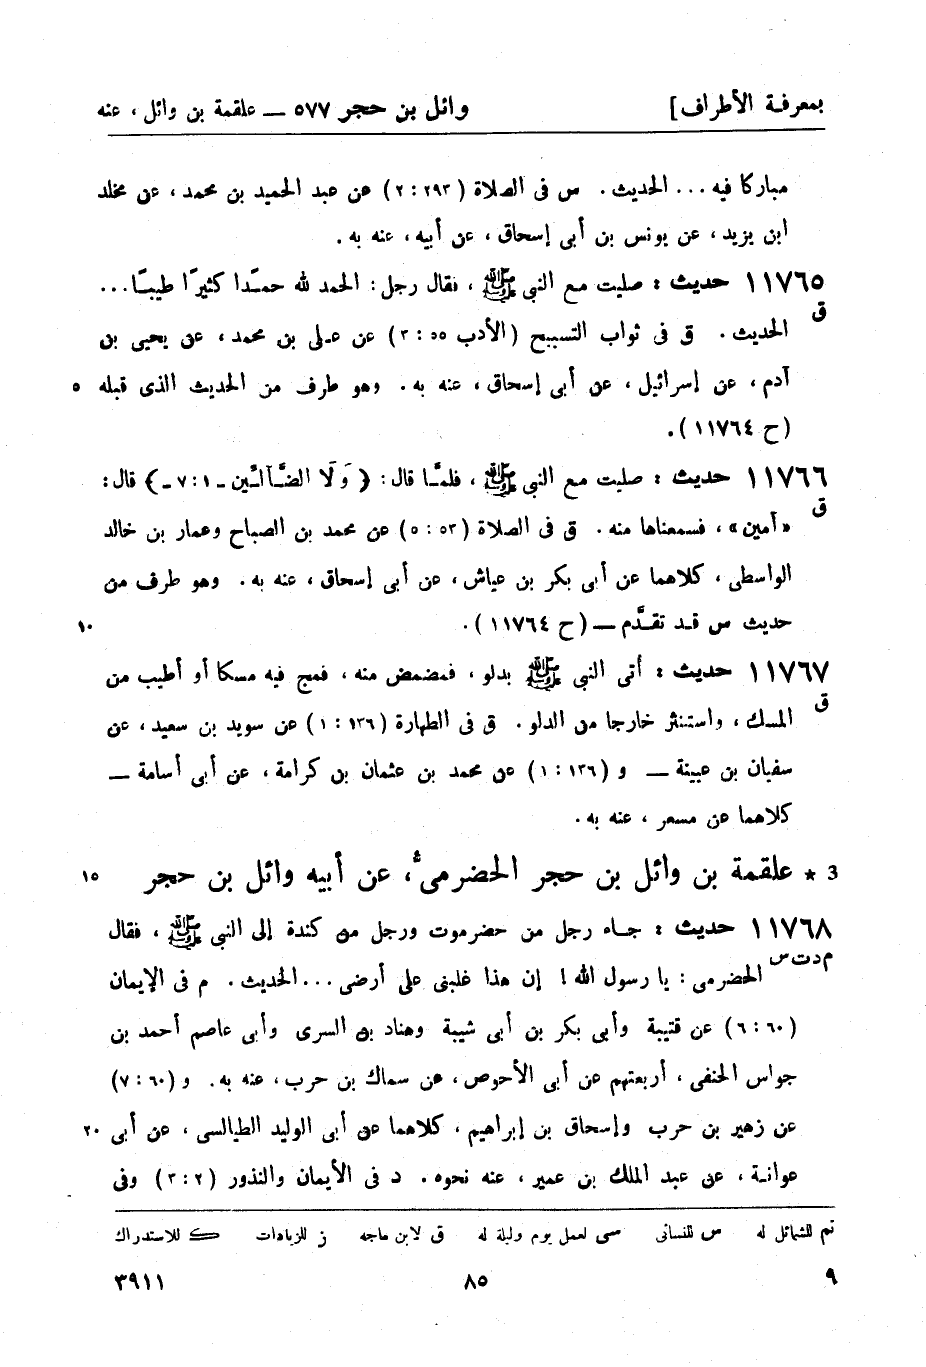 بمعرفة الأطراف] وائل بن حجر ٥٧٧ — علقمة بن وائل ، عنه
مباركا فيه ... الحديث . س فى الصلاة (٢٩٣ : ٢) عن عبد الحميد بن محمد ، عن مخلد
ابن يزيد ، عن يونس بن أبى إسحاق ، عن أبيه ، عنه به .
١١٧٦٥ حديث : صليت مع النبى ﷺ ، فقال رجل : الحمد لله حمدًا كثيرًا طيبًا ...
ق
الحديث . ق فى ثواب التسبيح (الأدب ٥٥ : ٣) عن على بن محمد ، عن يحيى بن
آدم ، عن إسرائيل ، عن أبى إسحاق ، عنه به . وهو طرف من الحديث الذى قبله ٥
(ح ١١٧٦٤) .
١١٧٦٦ حديث : صليت مع النبى ﷺ ، فلمّا قال : ﴿ وَلَا الضَّآلّين ـ ١ : ٧ ـ ﴾ قال :
ق
«آمين» ، فسمعناها منه . ق فى الصلاة (٥٣ : ٥) عن محمد بن الصباح وعمار بن خالد
الواسطى ، كلاهما عن أبى بكر بن عياش ، عن أبى إسحاق ، عنه به . وهو طرف من
حديث س قد تقدَّم — (ح ١١٧٦٤) . ١٠
١١٧٦٧ حديث : أتى النبى ﷺ بدلو ، فمضمض منه ، فمج فيه مسكا أو أطيب من
ق
المسك ، واستنثر خارجا من الدلو . ق فى الطهارة (١٣٦ : ١) عن سويد بن سعيد ، عن
سفيان بن عيينة — و (١٣٦ : ١) عن محمد بن عثمان بن كرامة ، عن أبى أسامة —
كلاهما عن مسعر ، عنه به .
3 * علقمة بن وائل بن حجر الحضرمىُّ ، عن أبيه وائل بن حجر ١٥
١١٧٦٨ حديث : جاء رجل من حضرموت ورجل من كندة إلى النبى ﷺ ، فقال
م د ت س
الحضرمى : يا رسول الله ! إن هذا غلبنى على أرضى ... الحديث . م فى الإيمان
(٦٠ : ٦) عن قتيبة وأبى بكر بن أبى شيبة وهناد بن السرى وأبى عاصم أحمد بن
جواس الحنفى ، أربعتهم عن أبى الأحوص ، عن سماك بن حرب ، عنه به . و (٦٠ : ٧)
عن زهير بن حرب وإسحاق بن إبراهيم ، كلاهما عن أبى الوليد الطيالسى ، عن أبى ٢٠
عوانة ، عن عبد الملك بن عمير ، عنه نحوه . د فى الأيمان والنذور (٢ : ٣) وفى
تم للشمائل له س للنسائى سى لعمل يوم وليلة له ق لابن ماجه ز للزيادات ك للاستدراك
٩ ٨٥ ٣٩١١